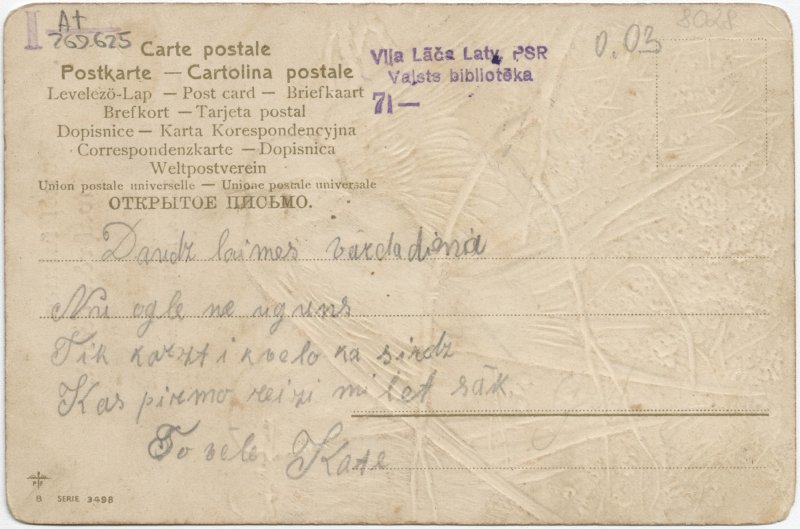 At
769.625
8028
0.03
Carte postale
Postkarte — Cartolina postale
Levelező-Lap — Post card — Briefkaart
Brefkort — Tarjeta postal
Dopisnice — Karta Korespondencyjna
Correspondenzkarte — Dopisnica
Weltpostverein
Union postale universelle — Unione postale universale
ОТКРЫТОЕ ПИСЬМО.
Viļa Lāča Latv. PSR
Valsts bibliotēka
71—
Daudz laimes vārdadienā
Nu ogle ne uguns
Tik karzt i kvelo ka sirdz
Kas pirmo reizi milet sāk
To vēle Kate
B SERIE 3498